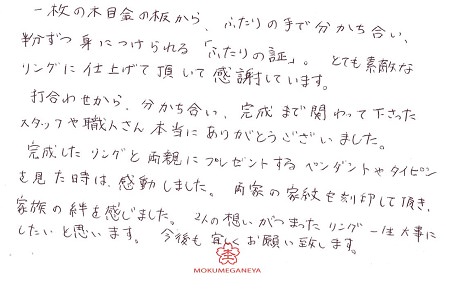 一枚の木目金の板から、ふたりの手で分かち合い、
半分ずつ身につけられる「ふたりの証」。とても素敵な
リングに仕上げて頂いて感謝しています。
打合わせから、分かち合い、完成まで関わって下さった
スタッフや職人さん本当にありがとうございました。
完成したリングと両親にプレゼントするペンダントやタイピン
を見た時は、感動しました。両家の家紋を刻印して頂き、
家族の絆を感じました。2人の想いがつまったリング一生大事に
したいと思います。今後も宜しくお願い致します。
MOKUMEGANEYA